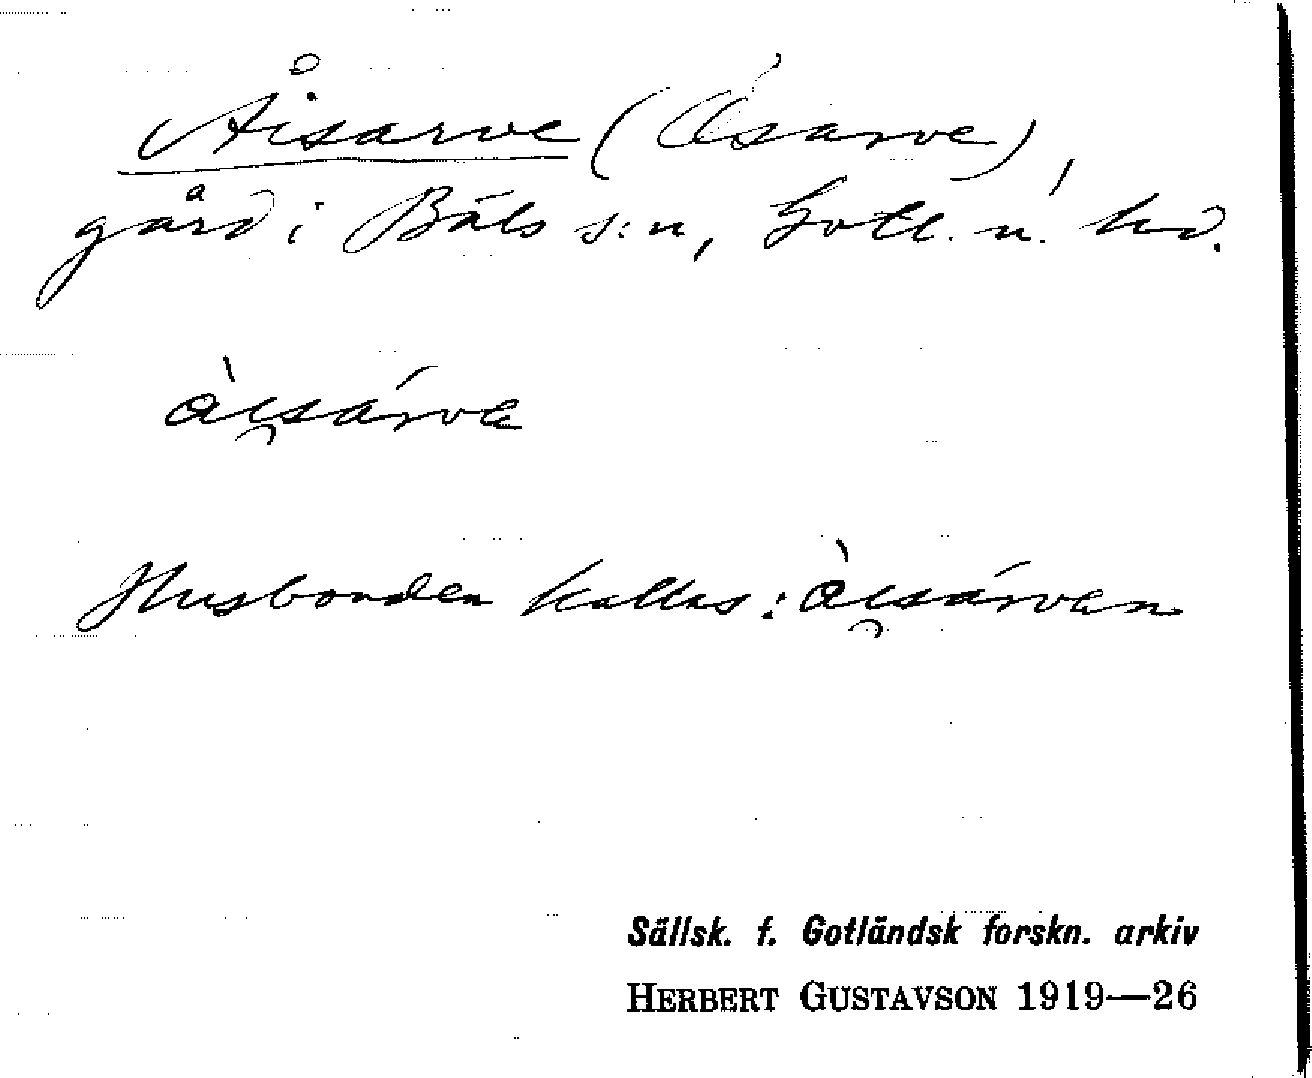 Åisarve (Åsarve),
gård i Bäls s:n, Gotl. n. hd.
ài̯sárvę
Husbonden kallas: ài̯sárvan
Sällsk. f. Gotländsk forskn. arkiv
HERBERT GUSTAVSON 1919—26